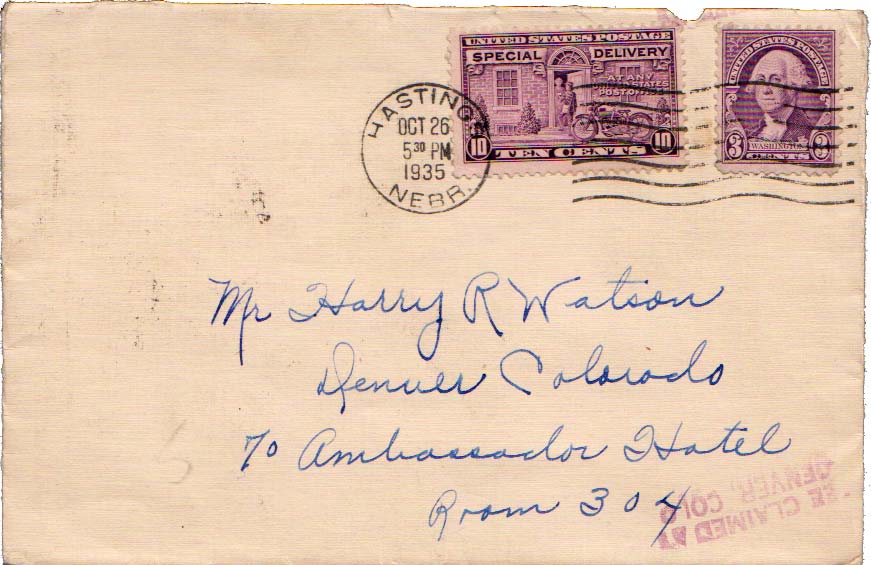 UNITED STATES POSTAGE
SPECIAL DELIVERY
AT ANY
UNITED STATES
POST OFFICE
10 TEN CENTS 10
UNITED STATES POSTAGE
3 WASHINGTON 3
CENTS
HASTINGS
OCT 26
5 30 PM
1935
NEBR.
Mr Harry R Watson
Denver Colorado
% Ambassador Hotel
Room 304
FEE CLAIMED AT
DENVER, COLO